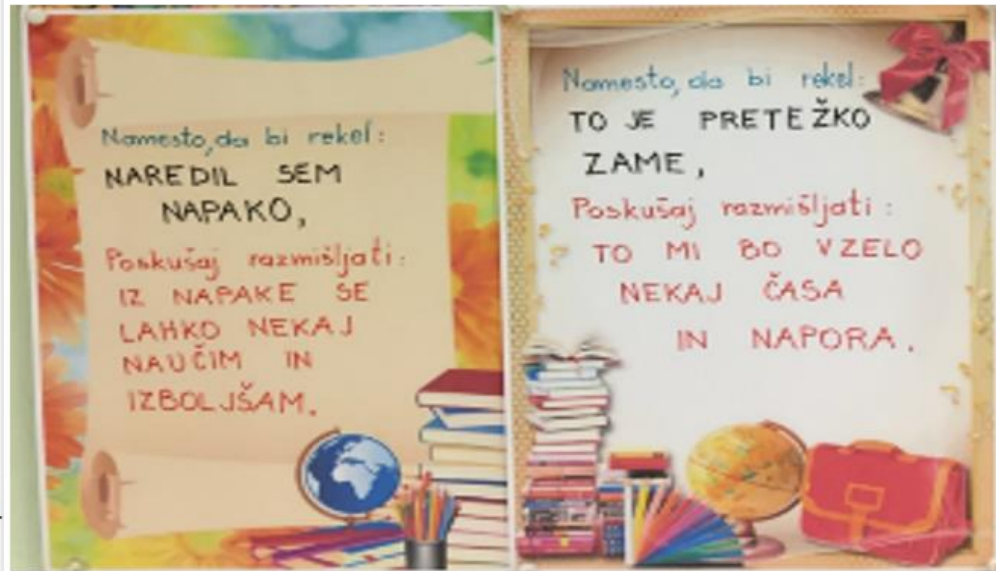 Namesto, da bi rekel:
NAREDIL SEM
NAPAKO,
Poskušaj razmišljati:
IZ NAPAKE SE
LAHKO NEKAJ
NAUČIM IN
IZBOLJŠAM.
Namesto, da bi rekel:
TO JE PRETEŽKO
ZAME,
Poskušaj razmišljati:
TO MI BO VZELO
NEKAJ ČASA
IN NAPORA.